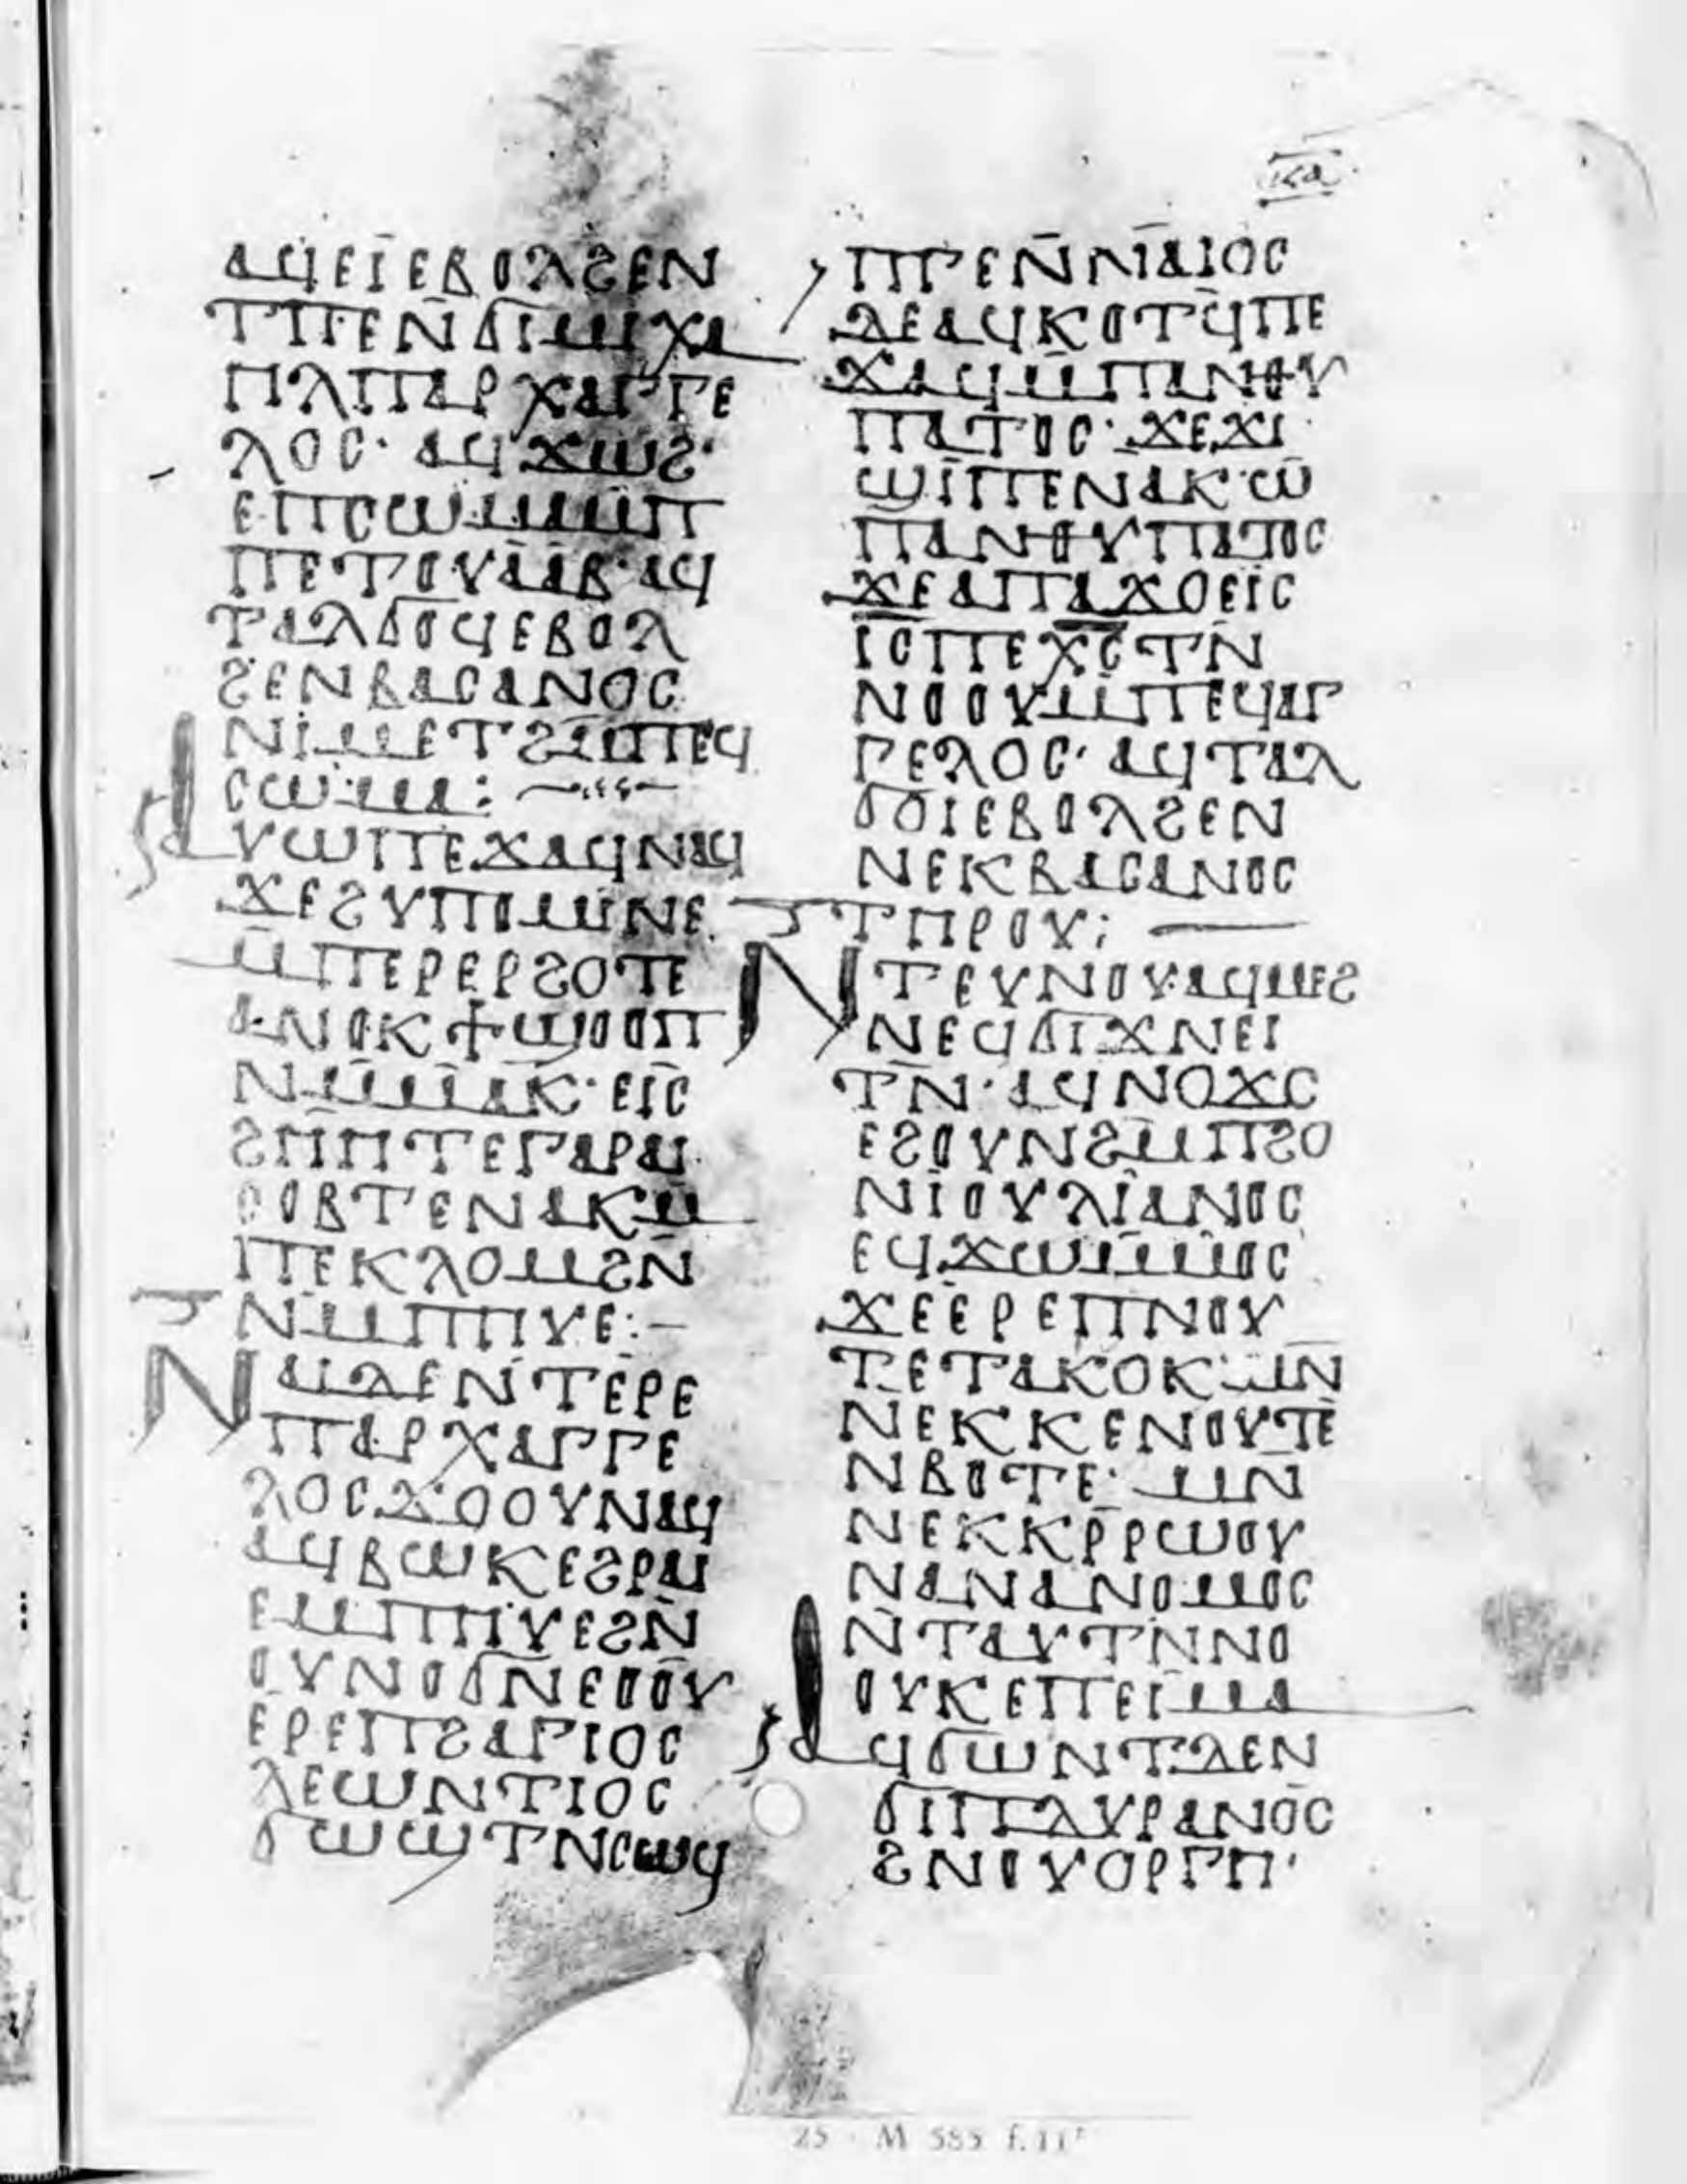 ⲕⲁ
ⲁϥⲉⲓⲉⲃⲟⲗϩⲉⲛ
ⲧⲡⲉⲛ̄ϭⲓⲙⲓⲭⲁ
ⲏⲗⲡⲁⲣⲭⲁⲅⲅⲉ
ⲗⲟⲥ· ⲁϥϫⲱϩ·
ⲉⲡⲥⲱⲙⲙ̄ⲡ
ⲡⲉⲧⲟⲩⲁⲁⲃ· ⲁϥ
ⲧⲁⲗϭⲟϥⲉⲃⲟⲗ
ϩⲉⲛⲃⲁⲥⲁⲛⲟⲥ
ⲛⲓⲙⲉⲧϩⲙ̄ⲡⲉϥ
ⲥⲱⲙⲁ:
ⲁⲩⲱⲡⲉϫⲁϥⲛⲁϥ
ϫⲉϩⲩⲡⲟⲙⲓⲛⲉ
ⲙ̄ⲡⲉⲣⲉⲣϩⲟⲧⲉ
ⲁⲛⲟⲕϯϣⲟⲟⲡ
ⲛⲙ̄ⲙⲁⲕ· ⲉⲓⲥ
ϩⲏⲏⲧⲉⲅⲁⲣⲁⲓ
ⲥⲟⲃⲧⲉⲛⲁⲕⲙ̄
ⲡⲉⲕⲗⲟⲙϩⲛ̄
ⲛⲙⲡⲏⲩⲉ:–
ⲛⲁⲓⲇⲉⲛⲧⲉⲣⲉ
ⲡⲁⲣⲭⲁⲅⲅⲉ
ⲗⲟⲥϫⲟⲟⲩⲛⲁϥ
ⲁϥⲃⲱⲕⲉϩⲣⲁⲓ
ⲉⲙⲡⲏⲩⲉϩⲛ̄
ⲟⲩⲛⲟϭⲛⲉⲟⲟⲩ
ⲉⲣⲉⲡϩⲁⲅⲓⲟⲥ
ⲗⲉⲱⲛⲧⲓⲟⲥ
ϭⲱϣⲧⲛⲥⲱϥ
ⲡⲅⲉⲛ̄ⲛⲁⲓⲟⲥ
ⲇⲉⲁϥⲕⲟⲧϥⲡⲉ
ϫⲁϥⲙ̄ⲡⲁⲛⲑⲩ
ⲡⲁⲧⲟⲥ· ϫⲉϫⲓ
ϣⲓⲡⲉⲛⲁⲕ·ⲱ̄
ⲡⲁⲛⲑⲩⲡⲁⲧⲟⲥ
ϫⲉⲁⲡⲁϫⲟⲉⲓⲥ
ⲓⲥⲡⲉⲭⲥⲧⲛ̄
ⲛⲟⲟⲩⲙ̄ⲡⲉϥⲁⲅ
ⲅⲉⲗⲟⲥ· ⲁϥⲧⲁⲗ
ϭⲟⲓⲉⲃⲟⲗϩⲉⲛ
ⲛⲉⲕⲃⲁⲥⲁⲛⲟⲥ
ⲧⲏⲣⲟⲩ: —
ⲛⲧⲉⲩⲛⲟⲩ·ⲁϥⲙⲉϩ
ⲛⲉϥϭⲓϫⲛⲉⲓ
ⲧⲛ̄· ⲁϥⲛⲟϫⲥ
ⲉϩⲟⲩⲛϩⲙⲡϩⲟ
ⲛⲓⲟⲩⲗⲓⲁⲛⲟⲥ
ⲉϥϫⲱⲙ̄ⲙⲟⲥ
ϫⲉⲉⲣⲉⲡⲛⲟⲩ
ⲧⲉⲧⲁⲕⲟⲕ·ⲙⲛ̄
ⲛⲉⲕⲕⲉⲛⲟⲩⲧⲉ
ⲛⲃⲟⲧⲉ· ⲙⲛ̄
ⲛⲉⲕⲕⲣ̄ⲣⲱⲟⲩ
ⲛⲁⲛⲁⲛⲟⲙⲟⲥ
ⲛⲧⲁⲩⲧⲛⲛⲟ
ⲟⲩⲕⲉⲡⲉⲓⲙⲁ
ⲁϥϭⲱⲛⲧⲇⲉⲛ
ϭⲓⲡⲇⲩⲣⲁⲛⲟⲥ
ϩⲛⲟⲩⲟⲣⲅⲏ·
25 · M 585 f.11ʳ